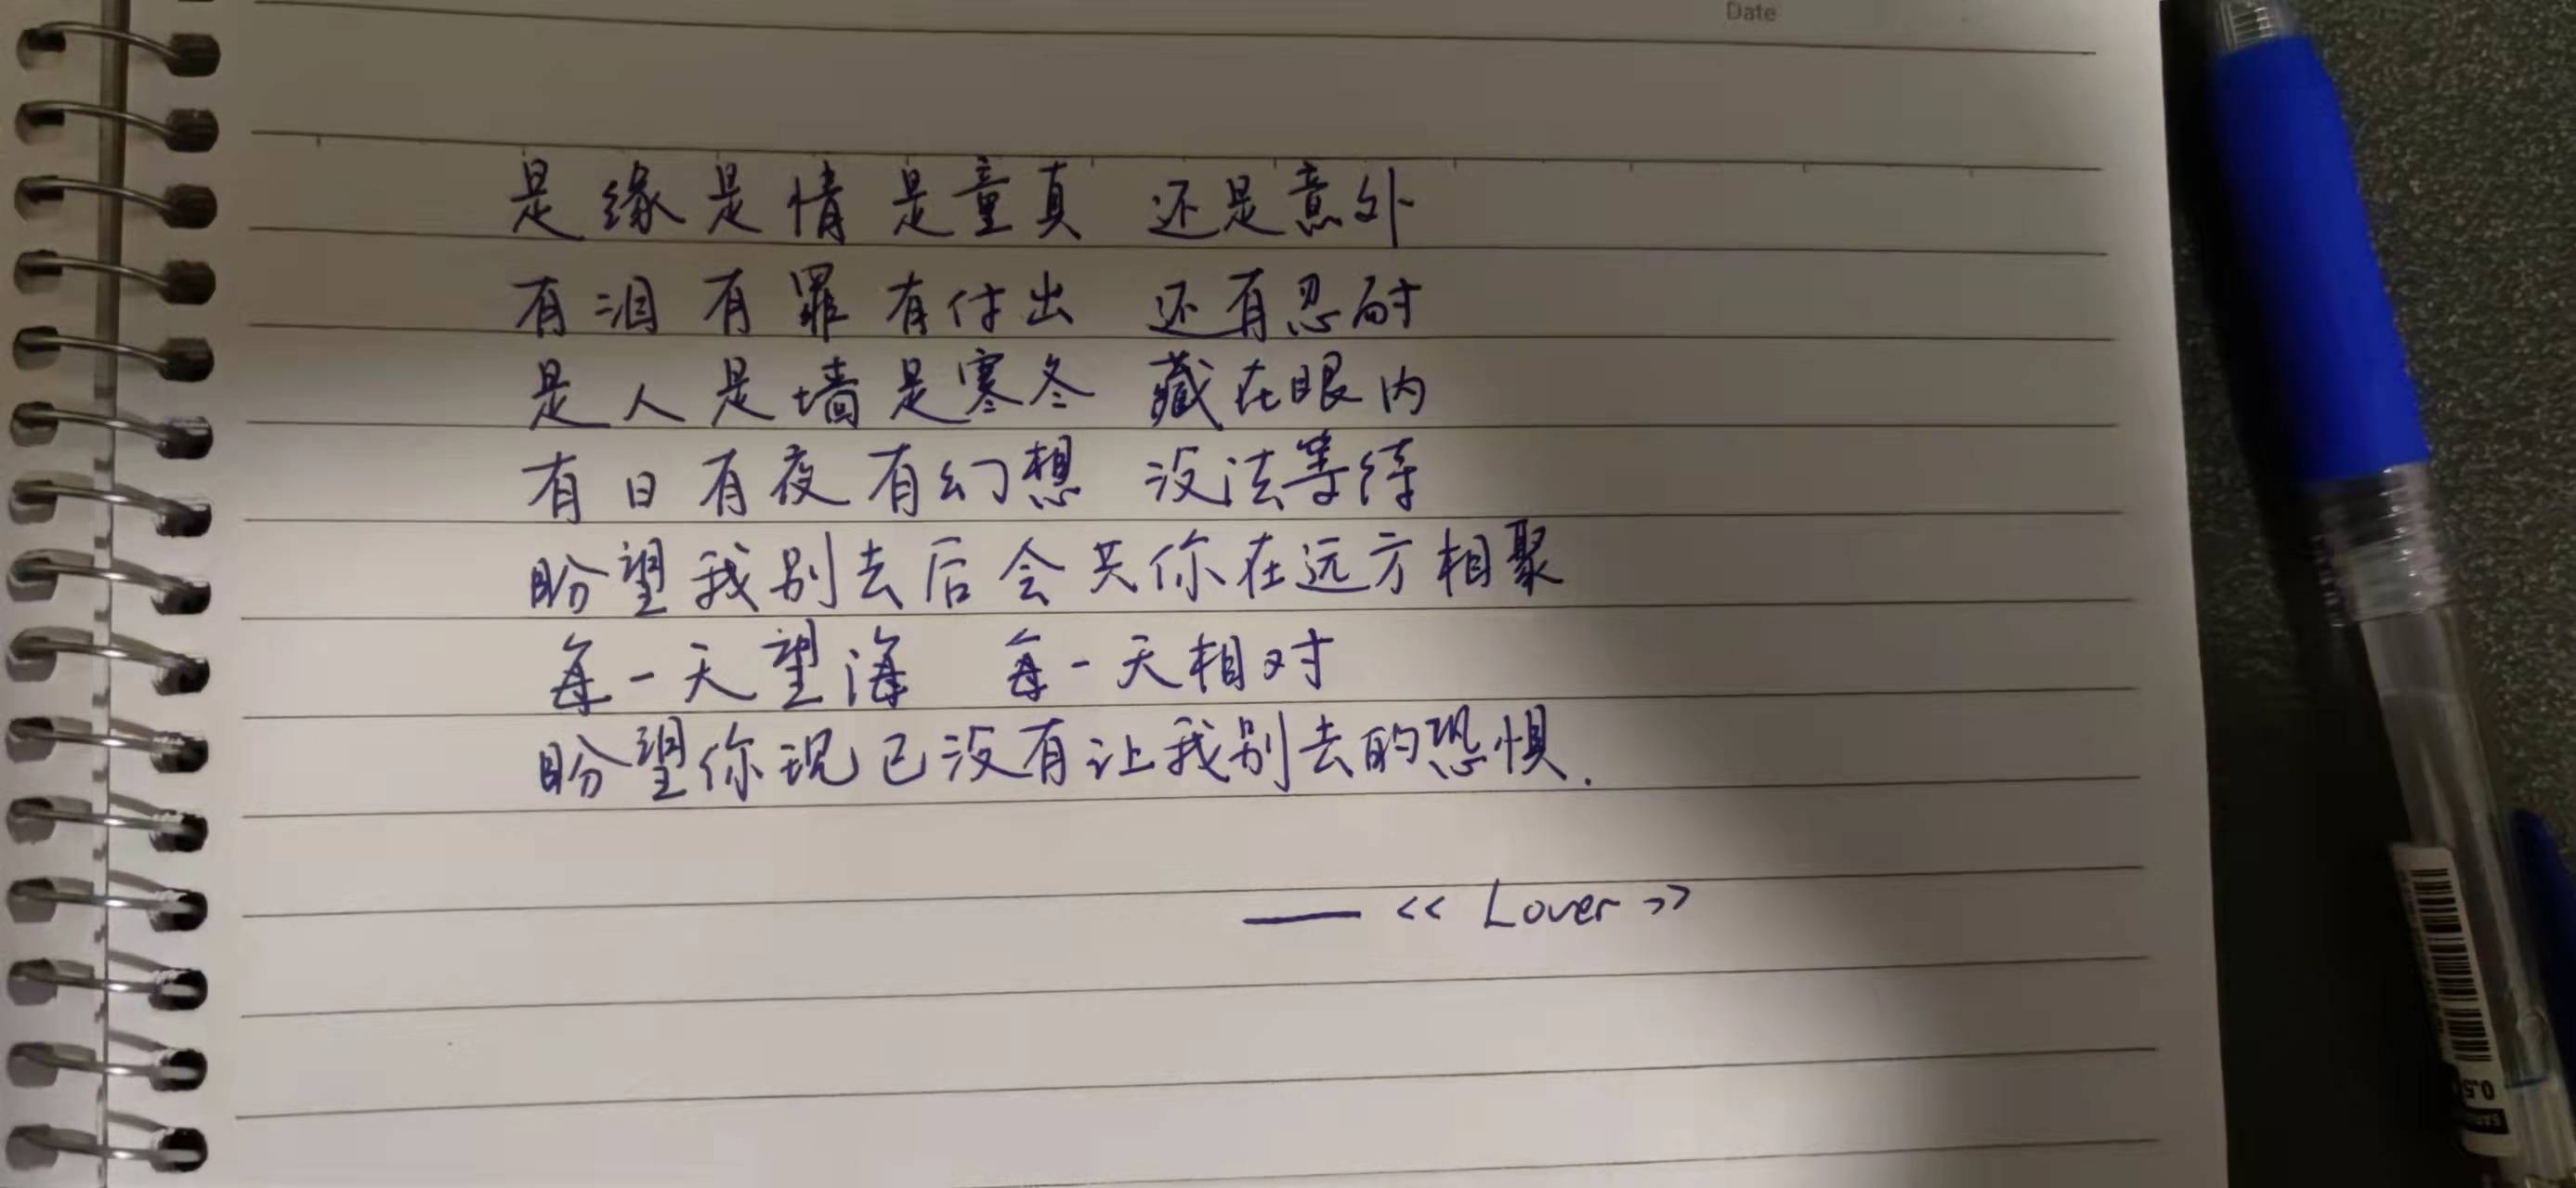 Date
是缘是情是童真 还是意外
有泪有罪有付出 还有忍耐
是人是墙是寒冬 藏在眼内
有日有夜有幻想 没法等待
盼望我别去后会共你在远方相聚
每一天望海 每一天相对
盼望你现已没有让我别去的恐惧.
—— << Lover >>
0.5